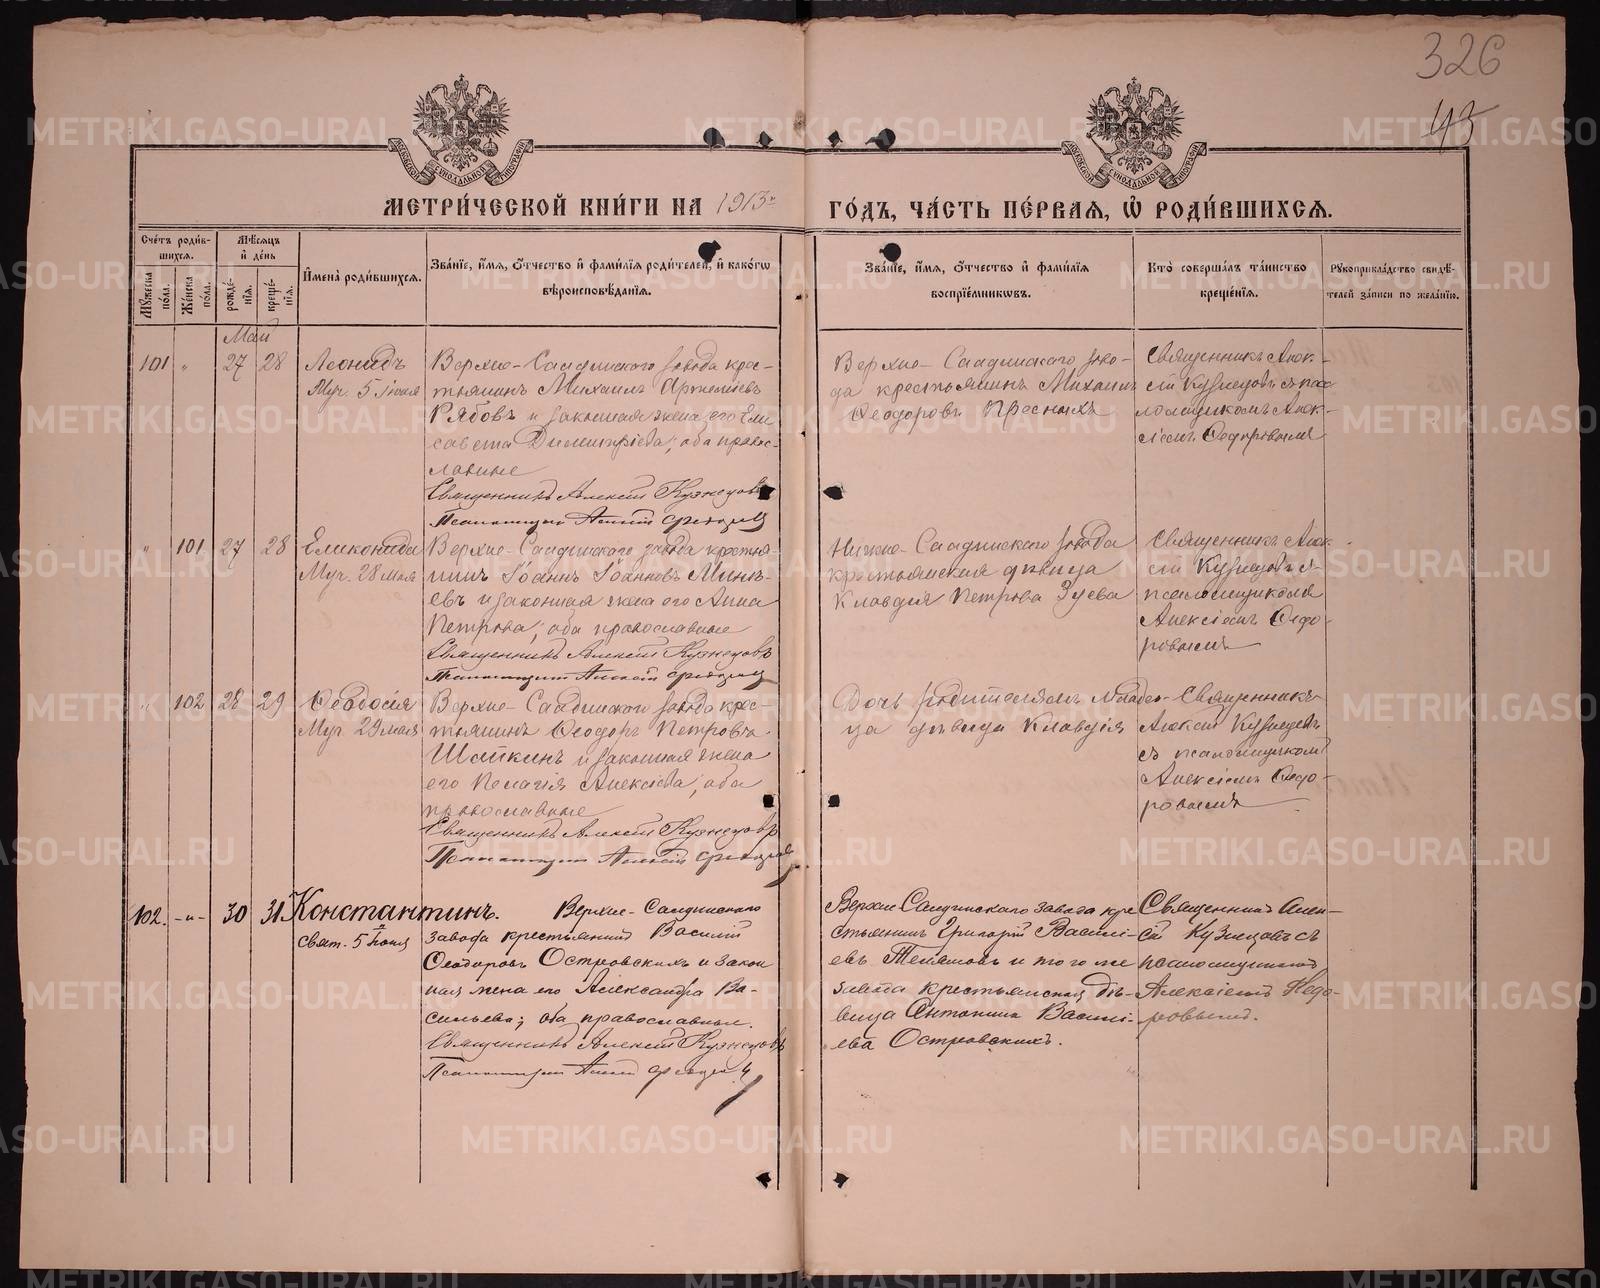 326
43
МОСКОВСКОЙ СѴНОДАЛЬНОЙ ТИПОГРАФІИ
МОСКОВСКОЙ СѴНОДАЛЬНОЙ ТИПОГРАФІИ
МЕТРИ́ЧЕСКОЙ КНИ́ГИ НА 1913 й ГО́ДЪ, ЧА́СТЬ ПЕ́РВАЯ, Ѡ҆ РОДИ́ВШИХСЯ.
Сче́тъ роди́в-
шихся.
Му́жеска по́ла.
Же́нска по́ла.
Мѣ́сяцъ
и҆ де́нь
рожде́-
нія.
креще́-
нія.
И҆мена̀ роди́вшихся.
Зва́ніе, и҆́мя, ѻ҆́тчество и҆ фами́лія роди́телей, и҆ како́гѡ
вѣроисповѣ́данія.
Зва́ніе, и҆́мя, ѻ҆́тчество и҆ фами́лія
воспріе́мникѡвъ.
Кто̀ соверша́лъ та́инство
креще́нія.
Рукоприкла́дство свидѣ́-
телей за́писи по жела́нію.
Май
101 " 27 28
Леонидъ
Муч. 5 іюня
Верхне-Салдинскаго завода крес-
тьянинъ Михаилъ Артемьевъ
Рябовъ и законная жена его Ели
савета Димитріева; оба право-
славные
Священникъ Алексій Кузнецовъ
Псаломщикъ Алексій
Верхне-Салдинскаго заво-
да крестьянинъ Михаилъ
Ѳеодоровъ Прѣсныхъ
Священникъ Алек-
сій Кузнецовъ съ пса-
ломщикомъ Алек-
сіемъ Ѳедоровымъ
" 101 27 28
Еликонида
Муч. 28 мая
Верхне-Салдинскаго завода крестья-
нинъ Іоаннъ Іоанновъ Мине-
евъ и законная жена его Анна
Петрова; оба православные
Священникъ Алексій Кузнецовъ
Псаломщикъ Алексій
Нижне-Салдинскаго завода
крестьянская дѣвица
Клавдія Петрова Зуева
Священникъ Алек-
сій Кузнецовъ съ
псаломщикомъ
Алексіемъ Ѳедо-
ровымъ
" 102 28 29
Ѳеодосія
Муч. 29 мая
Верхне-Салдинскаго завода крес-
тьянинъ Ѳеодоръ Петровъ
Шайкинъ и законная жена
его Пелагія Алексіева; оба
православные
Священникъ Алексій Кузнецовъ
Псаломщикъ Алексій
Дочь
ца дѣвица Клавдія
Священникъ
Алексій Кузнецовъ
съ псаломщикомъ
Алексіемъ Ѳедо-
ровымъ
102. -"- 30 31
Константинъ.
свят. 5 іюня
Верхне-Салдинскаго
завода крестьянинъ Василій
Ѳеодоровъ Островскихъ и закон
ная жена его Александра Ва-
сильева; оба православные.
Священникъ Алексій Кузнецовъ
Псаломщикъ Алексій
Верхне Салдинскаго завода кре
стьянинъ Григорій Василі-
евъ Теляшовъ и того же
завода крестьянская дѣ-
вица Антонина Василі-
ева Островскихъ.
Священникъ Алек-
сій Кузнецовъ съ
псаломщикомъ
Алексіемъ Ѳедо-
ровымъ.
METRIKI.GASO-URAL.RU